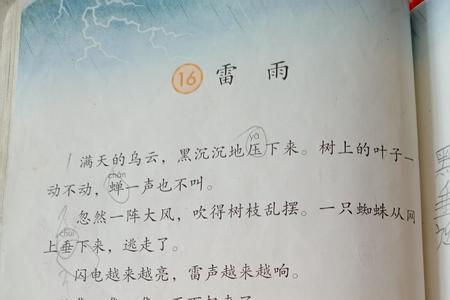 16 雷雨
yā
满天的乌云，黑沉沉地压下来。树上的叶子一
chán
动不动，蝉一声也不叫。
忽然一阵大风，吹得树枝乱摆。一只蜘蛛从网
chuí
上垂下来，逃走了。
闪电越来越亮，雷声越来越响。